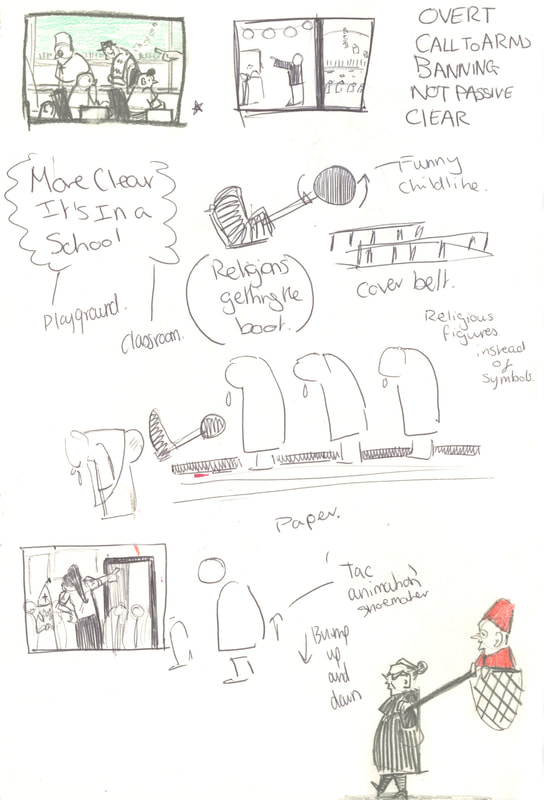 OVERT
CALL TO ARMS
BANNING
NOT PASSIVE
CLEAR
More Clear
It's In a
School
Playground.
Classroom.
Funny
Childlike.
Religions
getting the
boot.
cover belt.
Religious
figures
instead
of
Symbols.
Paper.
Tac
animation
shoemaker
Bump
up
and
down